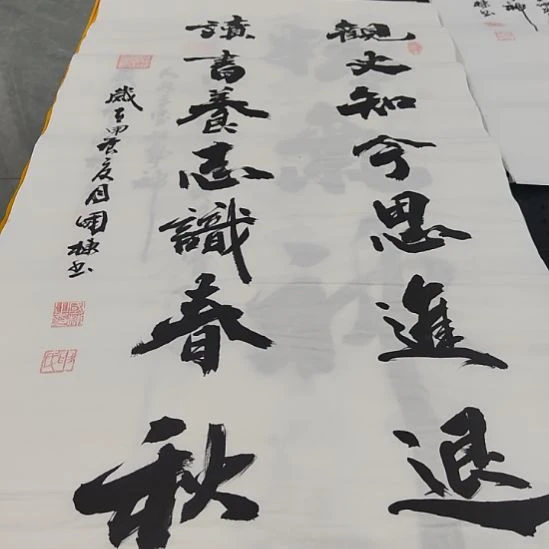 觀史知今思進退
讀書養志識春秋
歲在甲辰夏月國棟书